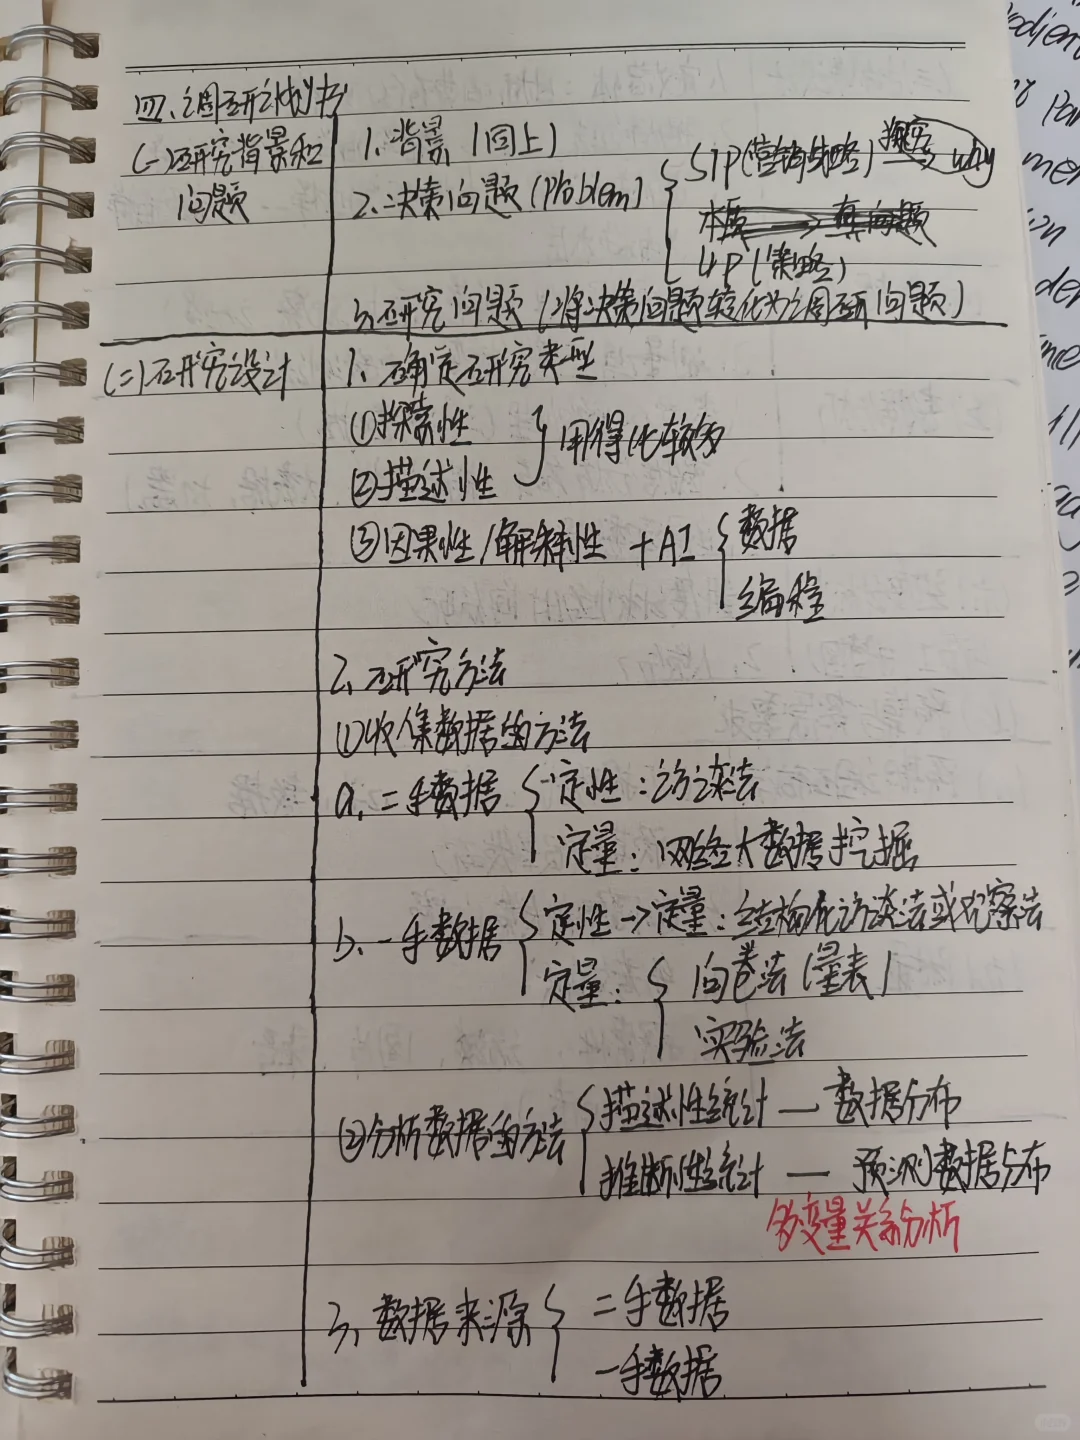 四、调研计划书
(一)研究背景和
问题
1、背景(同上)
2、决策问题(Problem)
STP(营销战略) 探究 why
本质 → 真问题
4P(策略)
3、研究问题(将决策问题转化为调研问题)
(二)研究设计
1、确定研究类型
①探索性
②描述性
用得比较多
③因果性/解释性 +AI
数据
编程
2、研究方法
①收集数据的方法
a、二手数据
定性:访谈法
定量:网络大数据挖掘
b、一手数据
定性→定量:结构化访谈法或观察法
定量:
问卷法(量表)
实验法
②分析数据的方法
描述性统计 — 数据分布
推断性统计 — 预测数据分布
多变量关系分析
3、数据来源
二手数据
一手数据